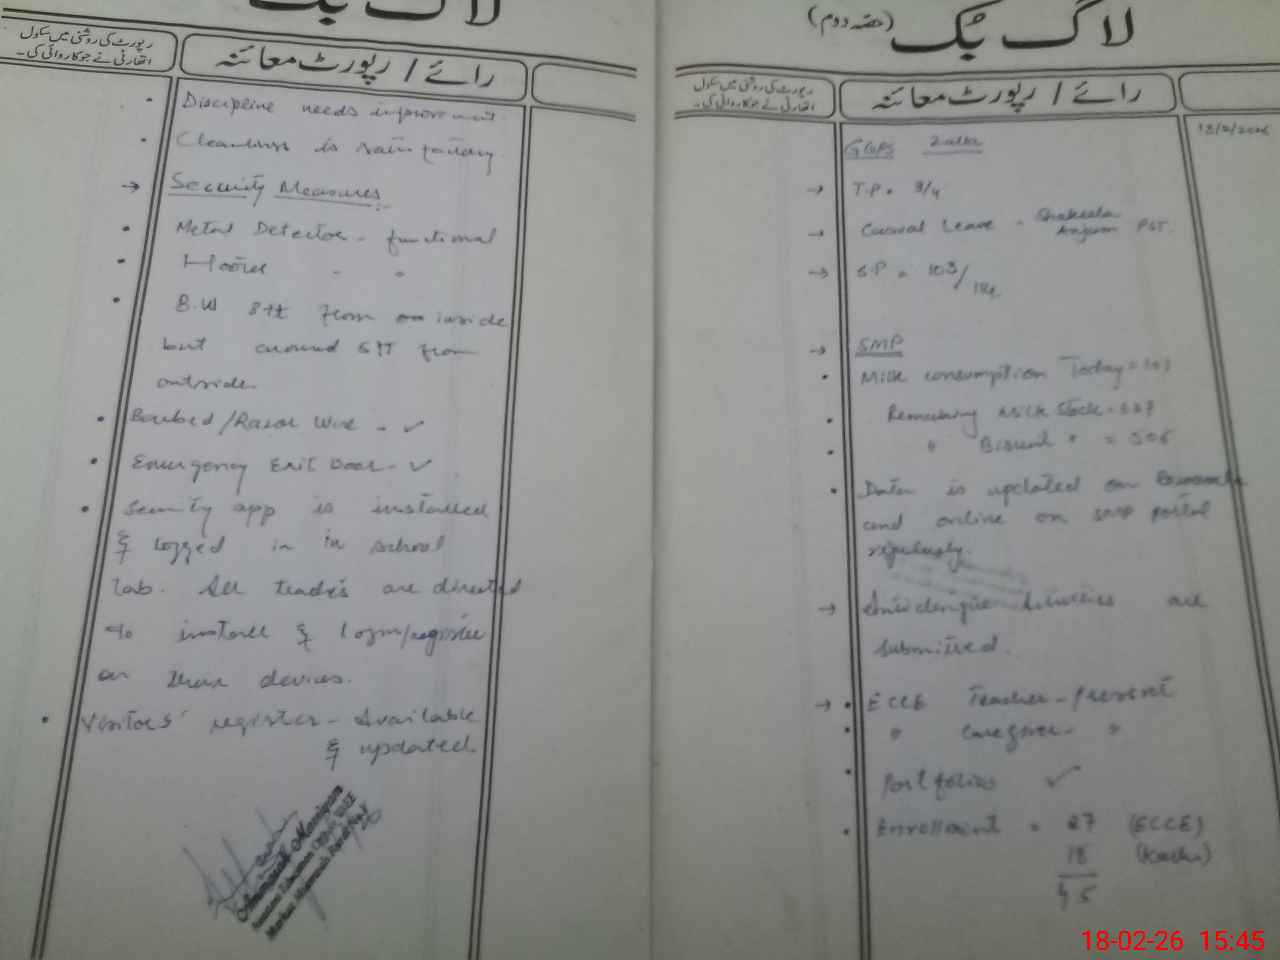 لاگ بک
رپورٹ کی روشنی میں سکول
اتھارٹی نے جو کاروائی کی۔
رائے / رپورٹ معائنہ
• Discipline needs improvement.
• Cleanliness is satisfactory.
→ Security Measures:-
• Metal Detector - functional
• Hooter - "
• B.W 8ft from inside
but around 5ft from
outside.
• Barbed/Razor Wire - ✓
• Emergency Exit Door - ✓
• Security app is installed
& logged in in school
tab. All teachers are directed
to install & login/register
on their devices.
• Visitors' register - Available
& updated.
لاگ بک (حصہ دوم)
رپورٹ کی روشنی میں سکول
اتھارٹی نے جو کاروائی کی۔
رائے / رپورٹ معائنہ
18/2/2026
GGPS
→ T.P = 3/4
→ Casual Leave - Shakeela
Anjum PST.
→ S.P = 103/114
→ SMP
• Milk consumption Today = 103
• Remaining Milk Stock =
• " Biscuit " = 506
• Data is updated on
and online on SMP portal
regularly.
→ Anti dengue Activities are
submitted.
→ • ECCE Teacher - Present
• " Caregiver - "
• Portfolios ✓
• Enrollment = 27 (ECCE)
18 (Kachi)
45
18-02-26 15:45